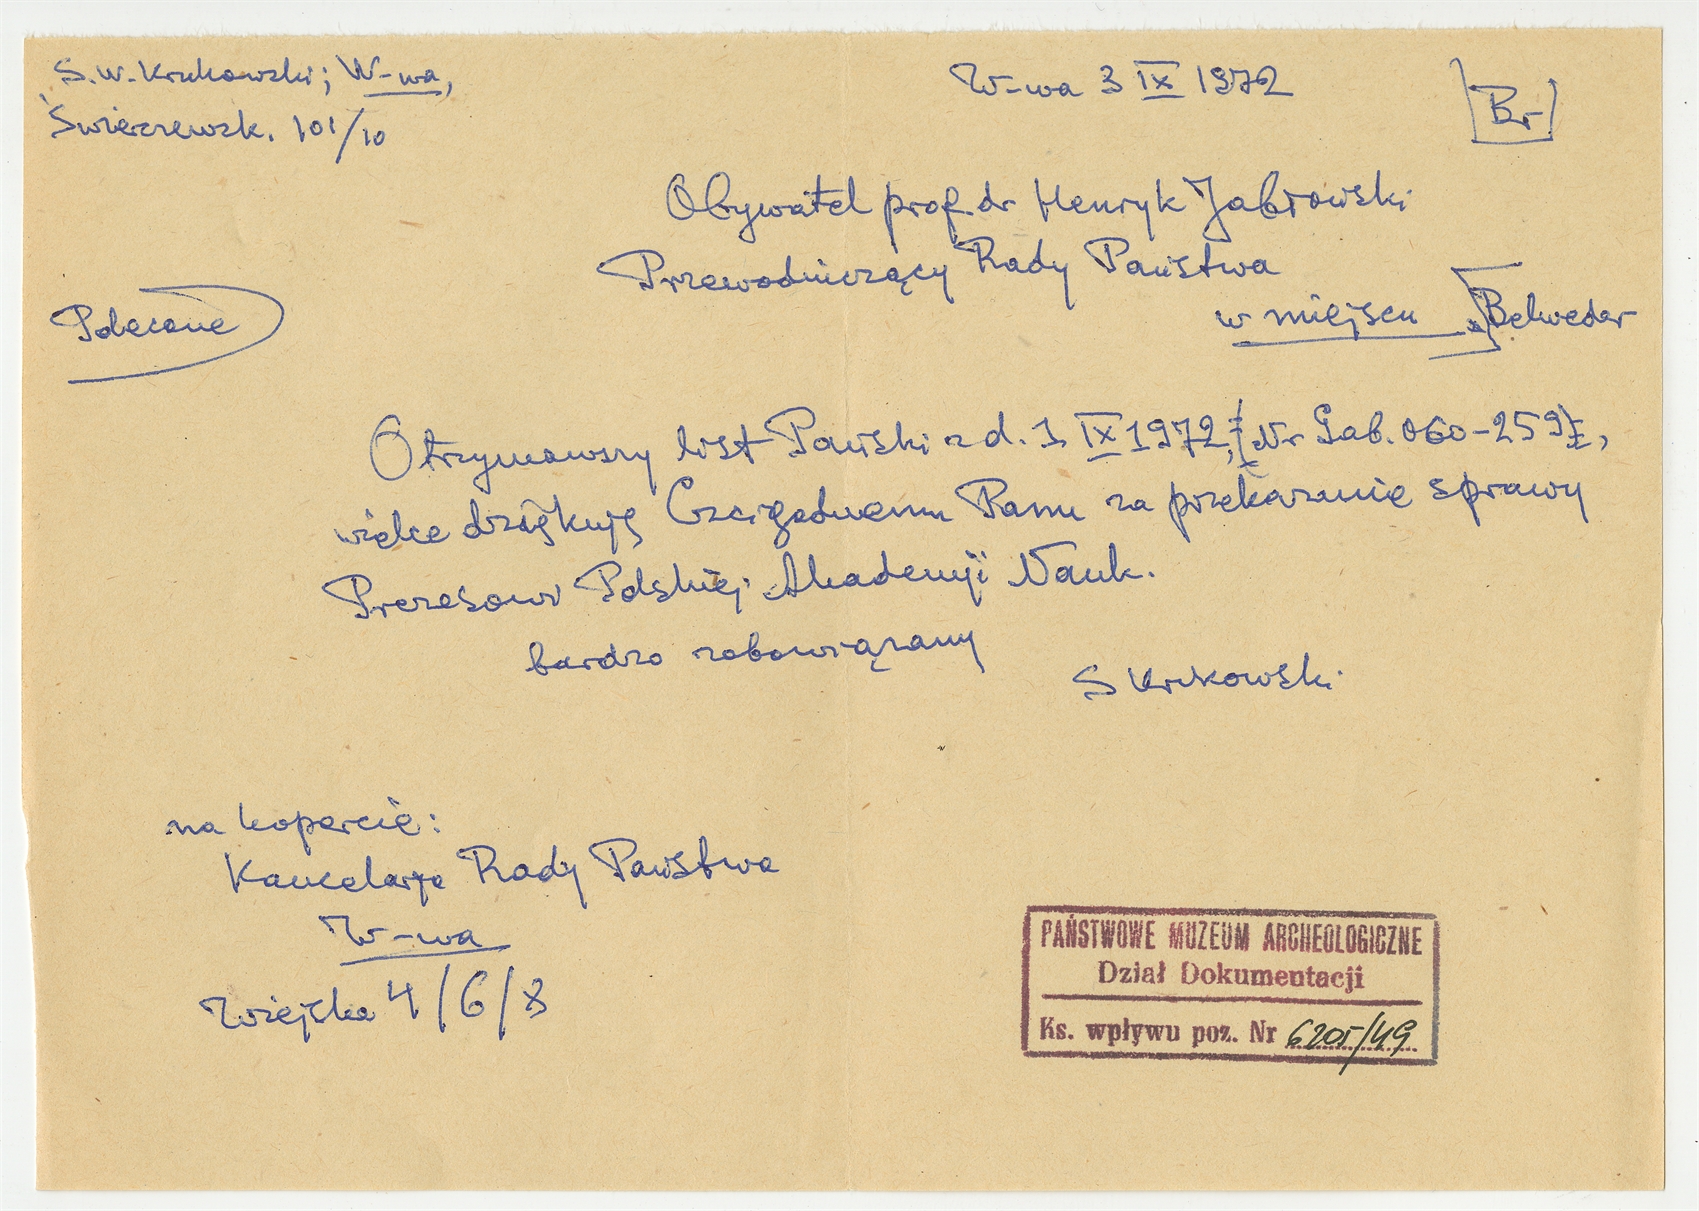 S.W. Krukowski; W-wa,
Świerczewsk. 101/10
W-wa 3 IX 1972
Br
Obywatel prof. dr Henryk Jabłowski
Przewodniczący Rady Państwa
w miejscu Belweder
Polecone
Otrzymawszy list Pański z d. 1 IX 1972, (Nr Gab. 060-259),
wielce dziękuję Czcigodnemu Panu za przekazanie sprawy
Prezesowi Polskiej Akademji Nauk.
bardzo zobowiązany
S Krukowski
na kopercie:
Kancelarja Rady Państwa
W-wa
Wiejska 4/6/8
PAŃSTWOWE MUZEUM ARCHEOLOGICZNE
Dział Dokumentacji
Ks. wpływu poz. Nr 6205/49